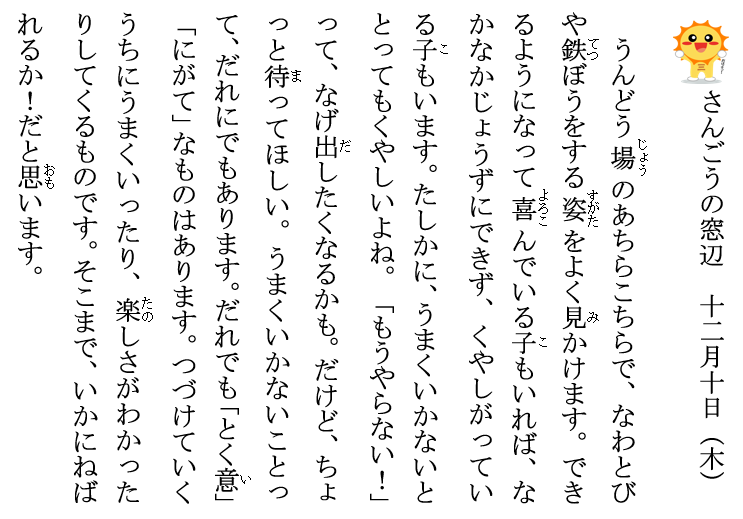 さんごうの窓辺　十二月十日（木）
うんどう場のあちらこちらで、なわとび
や鉄ぼうをする姿をよく見かけます。でき
るようになって喜んでいる子もいれば、な
かなかじょうずにできず、くやしがってい
る子もいます。たしかに、うまくいかないと
とってもくやしいよね。「もうやらない！」
って、なげ出したくなるかも。だけど、ちょ
っと待ってほしい。うまくいかないことっ
て、だれにでもあります。だれでも「とく意」
「にがて」なものはあります。つづけていく
うちにうまくいったり、楽しさがわかった
りしてくるものです。そこまで、いかにねば
れるか！だと思います。